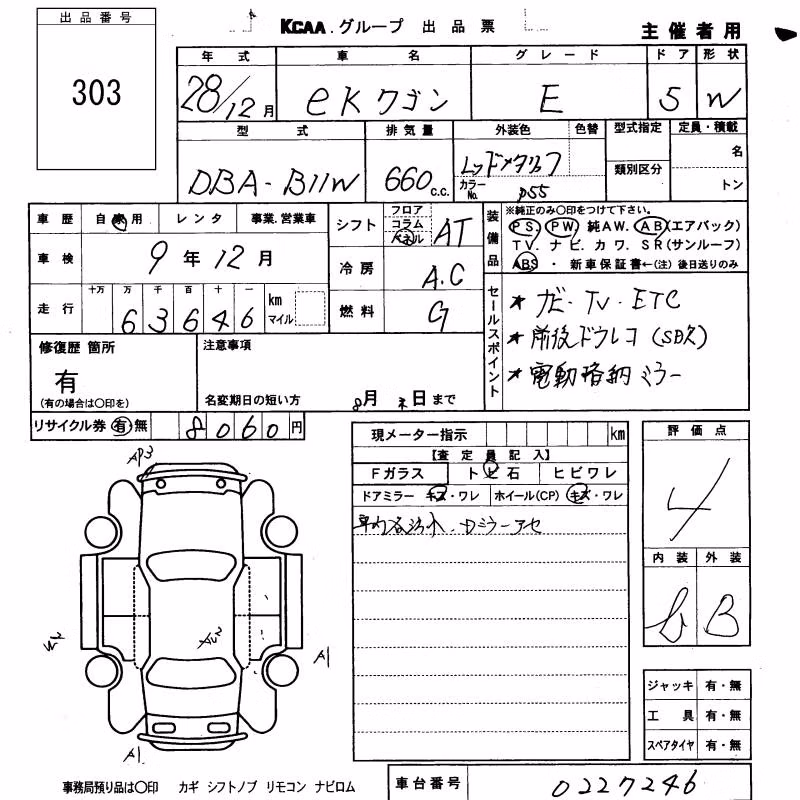 出品番号
303
KCAA.グループ 出品票
主催者用
年式 車名 グレード ドア 形状
28/12月 eKワゴン E 5 W
型式 排気量 外装色 色替 型式指定 定員・積載
DBA-B11W 660c.c. レッドメタリック
名
類別区分
カラーNo. P55
トン
車歴 自家用 レンタ 事業.営業車
車検 9年12月
走行 十万 万 千 百 十 一
63646 km マイル
シフト フロア コラム パネル AT
冷房 A.C
燃料 G
装備品
※純正のみ〇印をつけて下さい。
PS. PW. 純AW. AB(エアバック)
TV. ナビ. カワ. SR(サンルーフ)
ABS ・ 新車保証書←(注)後日送りのみ
セールスポイント
* ナビ・TV・ETC
* 前後ドラレコ(SD欠)
* 電動格納ミラー
修復歴 箇所
有
(有の場合は〇印を)
注意事項
名変期日の短い方 8月末日まで
リサイクル券 有 無 8060円
現メーター指示 km
【査定員記入】
Fガラス トビ石 ヒビワレ
ドアミラー キズ・ワレ ホイール(CP) キズ・ワレ
車内各汚れ.Dミラーアセ
評価点
4
内装 外装
b B
AP3
A1
AU2
A1
ジャッキ 有・無
工具 有・無
スペアタイヤ 有・無
事務局預り品は〇印 カギ シフトノブ リモコン ナビロム
車台番号 0227246